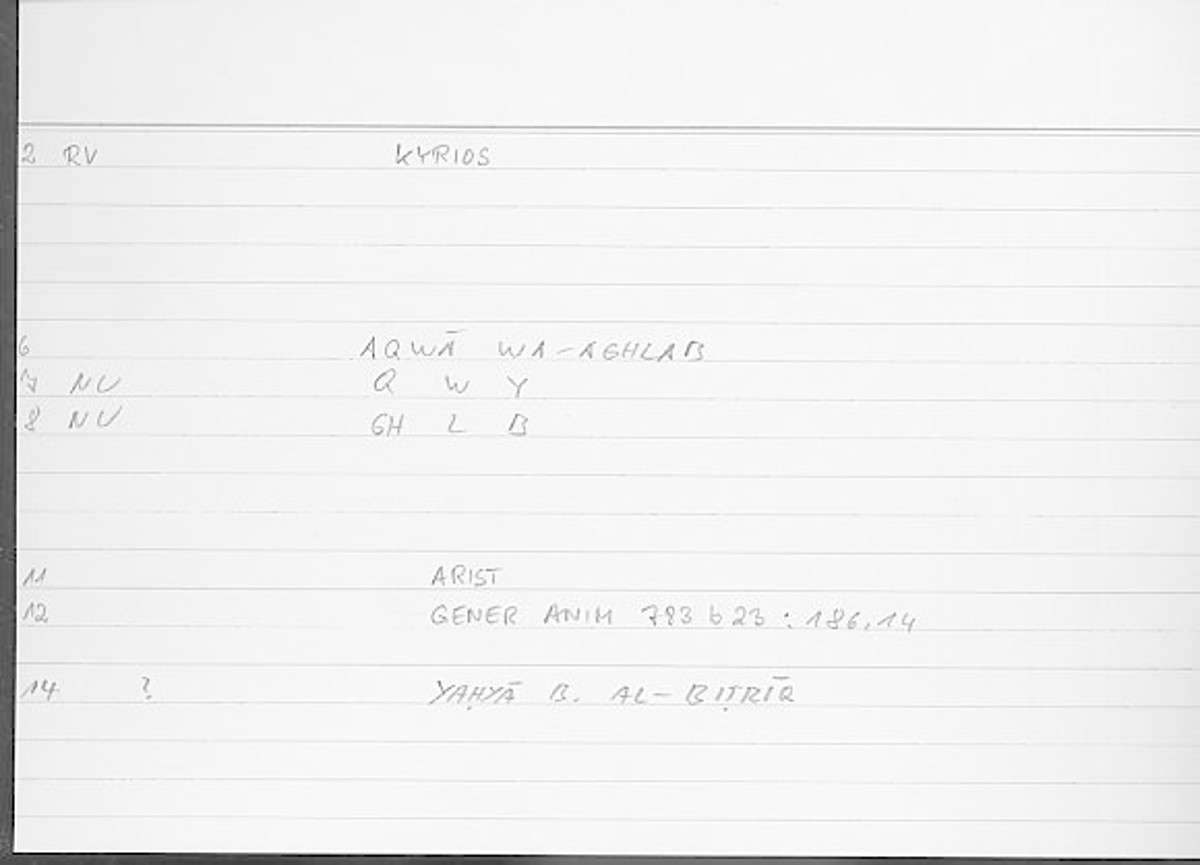 2 RV KYRIOS
6 AQWĀ WA-AGHLAB
7 NU Q W Y
8 NU GH L B
11 ARIST
12 GENER ANIM 783 b 23 : 186,14
14 ? YAḤYĀ B. AL-BIṬRĪQ